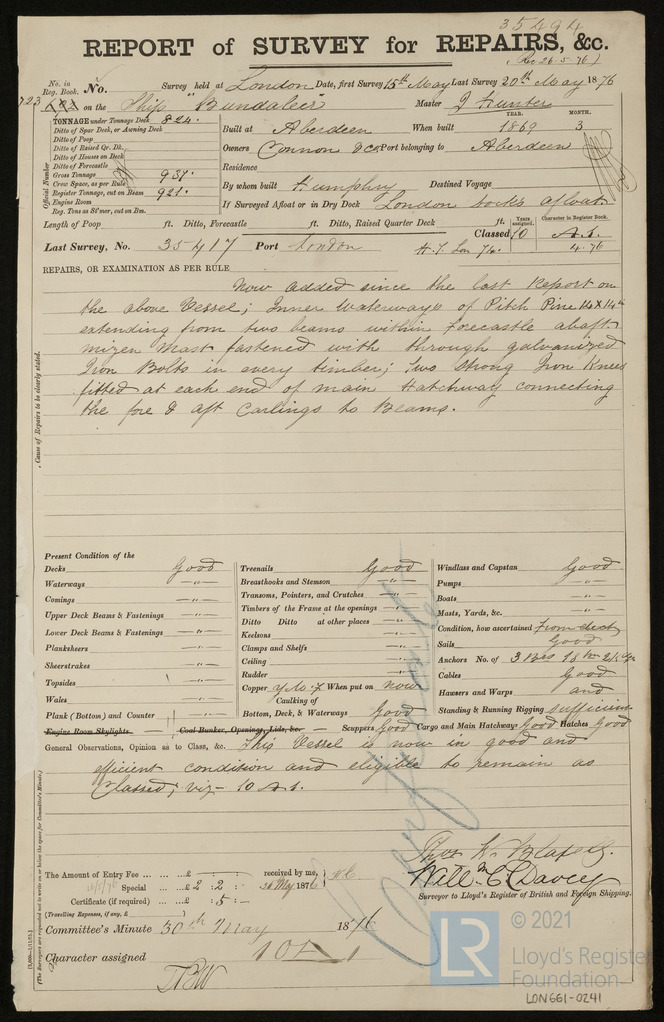 35494
REPORT of SURVEY for REPAIRS, &c.
(Rec 26.5.76)
No. in Reg. Book. No. Survey held at London Date, first Survey 15th May Last Survey 20th May 1876
723 on the Ship "Bundaleer Master J Hunter
TONNAGE under Tonnage Deck 824.
Ditto of Spar Deck, or Awning Deck
Ditto of Poop
Ditto of Raised Qr. Dk.
Ditto of Houses on Deck
Ditto of Forecastle
Gross Tonnage 937.
Crew Space, as per Rule
Register Tonnage, cut on Beam 921.
Engine Room
Reg. Tons as St'mer, cut on Bm.
Official Number
YEAR. MONTH.
Built at Aberdeen When built 1869 3
Owners Connon & Co Port belonging to Aberdeen
Residence
By whom built Humphrey Destined Voyage
If Surveyed Afloat or in Dry Dock London Docks afloat
Length of Poop ft. Ditto, Forecastle ft. Ditto, Raised Quarter Deck ft.
Years assigned. Character in Register Book.
Classed 10 A.1.
Last Survey, No. 35417 Port London H.T. Lon 76. 4.76
REPAIRS, OR EXAMINATION AS PER RULE
Now added since the last Report on
the above Vessel; Inner Waterways of Pitch Pine 14 x 14in
extending from two beams within Forecastle abaft
mizen Mast fastened with through galvanized
Iron Bolts in every timber; Two strong Iron Knees
fitted at each end of main Hatchway connecting
the fore & aft Carlings to Beams.
Cause of Repairs to be clearly stated.
Present Condition of the
Decks Good
Waterways -"-
Comings -"-
Upper Deck Beams & Fastenings -"-
Lower Deck Beams & Fastenings -"-
Plansheers -"-
Sheerstrakes -"-
Topsides -"-
Wales -"-
Plank (Bottom) and Counter -"-
Treenails Good
Breasthooks and Stemson -"-
Transoms, Pointers, and Crutches -"-
Timbers of the Frame at the openings -"-
Ditto Ditto at other places -"-
Keelsons -"-
Clamps and Shelfs -"-
Ceiling -"-
Rudder -"-
Copper Y.M.F When put on now
Caulking of
Bottom, Deck, & Waterways Good
Windlass and Capstan Good
Pumps -"-
Boats -"-
Masts, Yards, &c. -"-
Condition, how ascertained From deck
Sails Good
Anchors No. of 3 Brs 1 St
Cables Good
Hawsers and Warps and
Standing & Running Rigging sufficient
Engine Room Skylights Coal Bunker, Openings, Lids, &c. Scuppers Good Cargo and Main Hatchway Good Hatches Good
General Observations, Opinion as to Class, &c. This Vessel is now in good and
efficient condition and eligible to remain as
Classed; viz- 10 A.1.
(The Surveyors are requested not to write on or below the space for Committee's Minute.)
The Amount of Entry Fee ... ... £ : : received by me,
Special ... £ 2 : 2 : 26 May 1876
Certificate (if required) ... £ : 5 : -
(Travelling Expenses, if any, £ )
Will C Davey
Surveyor to Lloyd's Register of British and Foreign Shipping.
Committee's Minute 30th May 1876
Character assigned 10 A 1
© 2021
LR
Lloyd's Register
Foundation
LON661-0241